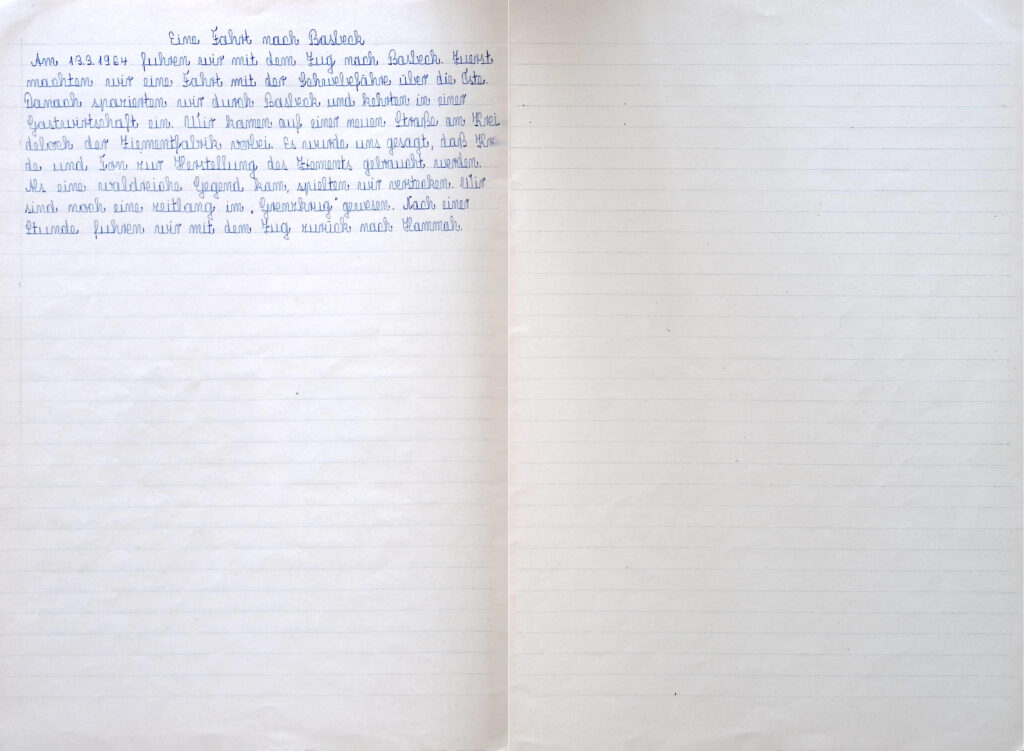 Eine Fahrt nach Basbeck
Am 13.3.1964 fuhren wir mit dem Zug nach Basbeck. Zuerst
machten wir eine Fahrt mit der Schwebefähre über die Oste.
Danach spazierten wir durch Basbeck und kehrten in einer
Gastwirtschaft ein. Wir kamen auf einer neuen Straße am Krei
deloch der Ziementfabrik vorbei. Es wurde uns gesagt, daß
de und Ton zur Herstellung des Ziements gebraucht werden.
Als eine waldreiche Gegend kam, spielten wir verstecken. Wir
sind noch eine zeitlang im „Grenzkrug" gewesen. Nach einer
Stunde fuhren wir mit dem Zug zurück nach Hammah.